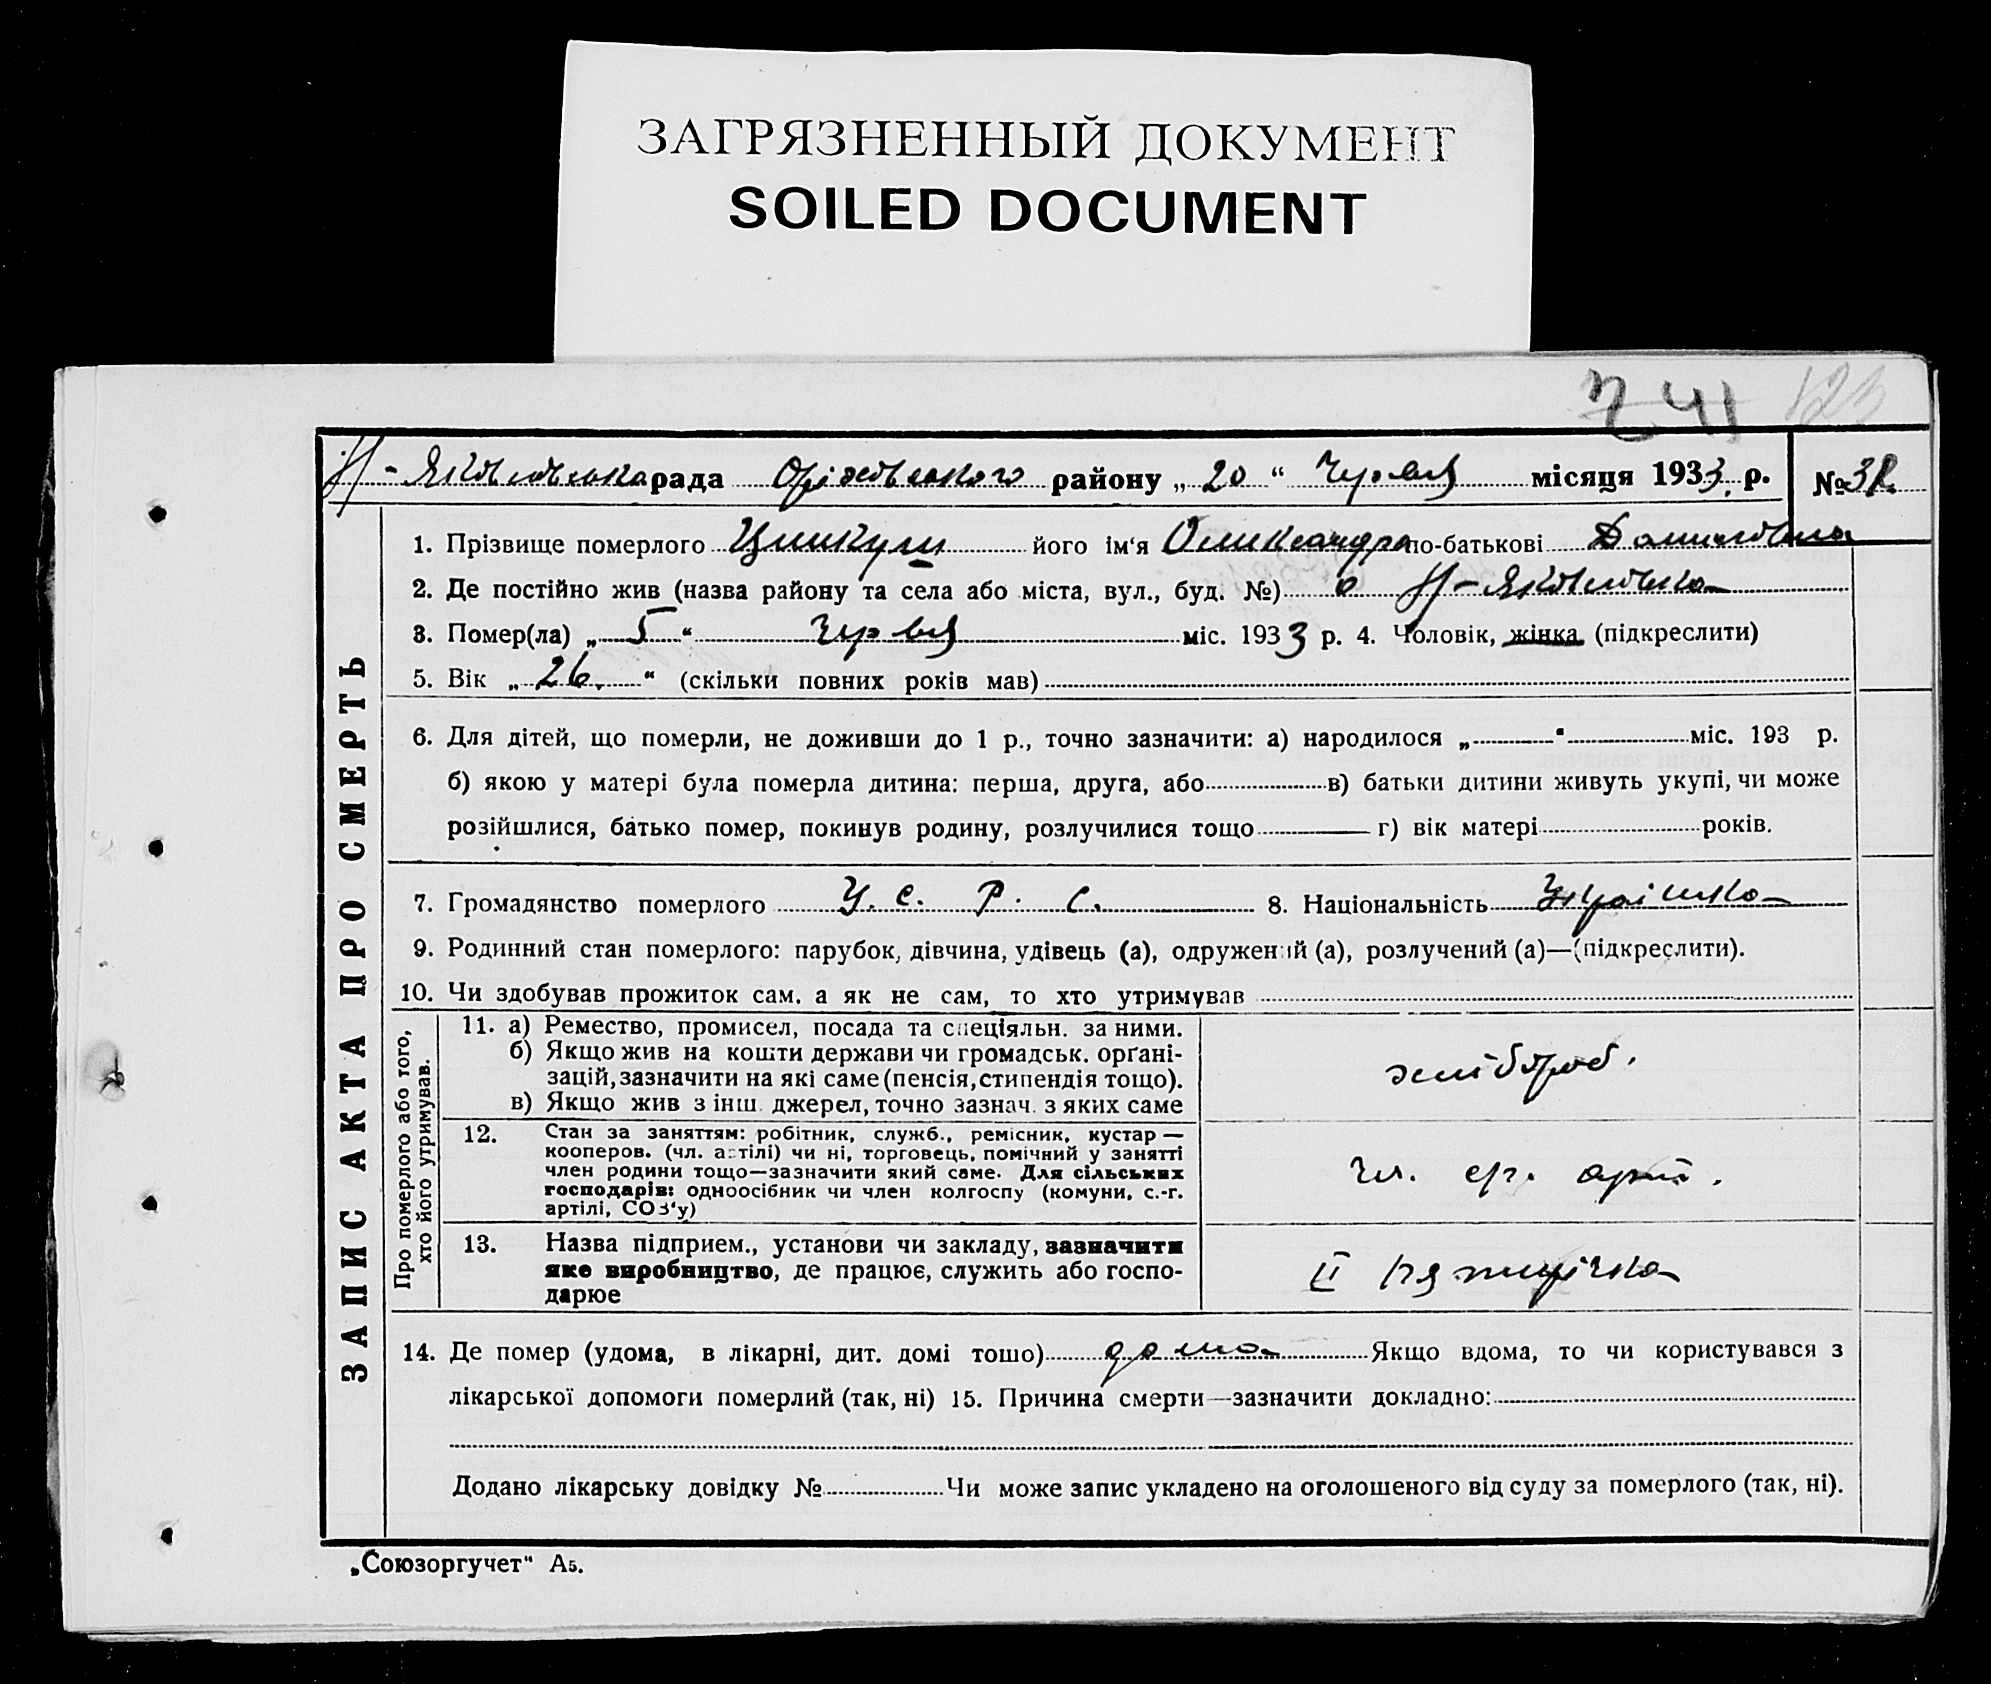 ЗАГРЯЗНЕННЫЙ ДОКУМЕНТ
SOILED DOCUMENT
741 123
Н-Яковлівська рада Оріхівського району „20“ Червня місяця 1933 р. №
ЗАПИС АКТА ПРО СМЕРТЬ
1. Прізвище померлого його ім‘я Олександра по-батькові Данилівна
2. Де постійно жив (назва району та села або міста, вул., буд. №) с Н-Яковлівка
3. Помер(ла) „5“ Червня міс. 1933 р. 4. Чоловік, жінка (підкреслити)
5. Вік „26.“ (скільки повних років мав)
6. Для дітей, що померли, не доживши до 1 р., точно зазначити: а) народилося „ “ міс. 193 р.
б) якою у матері була померла дитина: перша, друга, або в) батьки дитини живуть укупі, чи може
розійшлися, батько помер, покинув родину, розлучилися тощо г) вік матері років.
7. Громадянство померлого У. С. Р. С. 8. Національність Українка
9. Родинний стан померлого: парубок, дівчина, удівець (а), одружений (а), розлучений (а)—(підкреслити).
10. Чи здобував прожиток сам, а як не сам, то хто утримував
Про померлого або того,
хто його утримував.
11. а) Ремество, промисел, посада та спеціяльн. за ними.
б) Якщо жив на кошти держави чи громадськ. орґані-
зацій, зазначити на які саме (пенсія, стипендія тощо).
в) Якщо жив з інш. джерел, точно зазнач. з яких саме
хлібороб.
12. Стан за заняттям: робітник, служб., ремісник, кустар —
кооперов. (чл. артілі) чи ні, торговець, помічний у занятті
член родини тощо—зазначити який саме. Для сільських
господарів: одноосібник чи член колгоспу (комуни, с.-г.
артілі, СОЗ‘у)
чл. с/г. арт.
13. Назва підприєм., установи чи закладу, зазначити
яке виробництво, де працює, служить або госпо-
дарює
ІІ п'ятирічка
14. Де помер (удома, в лікарні, дит. домі тощо) дома Якщо вдома, то чи користувався з
лікарської допомоги померлий (так, ні) 15. Причина смерти—зазначити докладно:
Додано лікарську довідку № Чи може запис укладено на оголошеного від суду за померлого (так, ні).
„Союзоргучет“ А5.